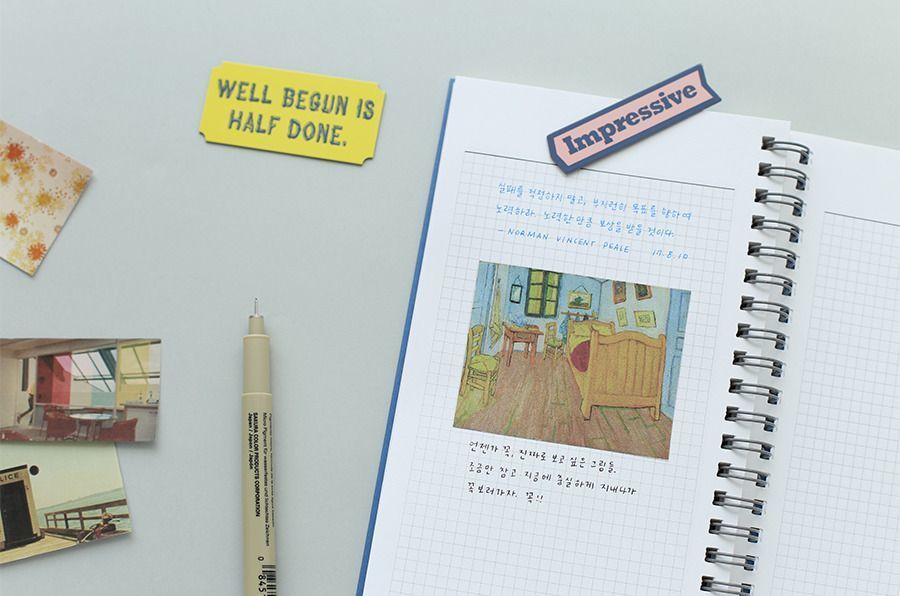 WELL BEGUN IS
HALF DONE.
Impressive
실패를 걱정하지 말고, 부지런히 목표를 향하여
노력하라. 노력한 만큼 보상을 받을 것이다.
- NORMAN VINCENT PEALE 17.8.10
언젠가 꼭, 진짜로 보고 싶은 그림들.
조금만 참고 지금에 충실하게 지내다가
꼭 보러가자. 꼭!!
SAKURA COLOR PRODUCTS CORPORATION
Japan / Japon / Japón
LICE